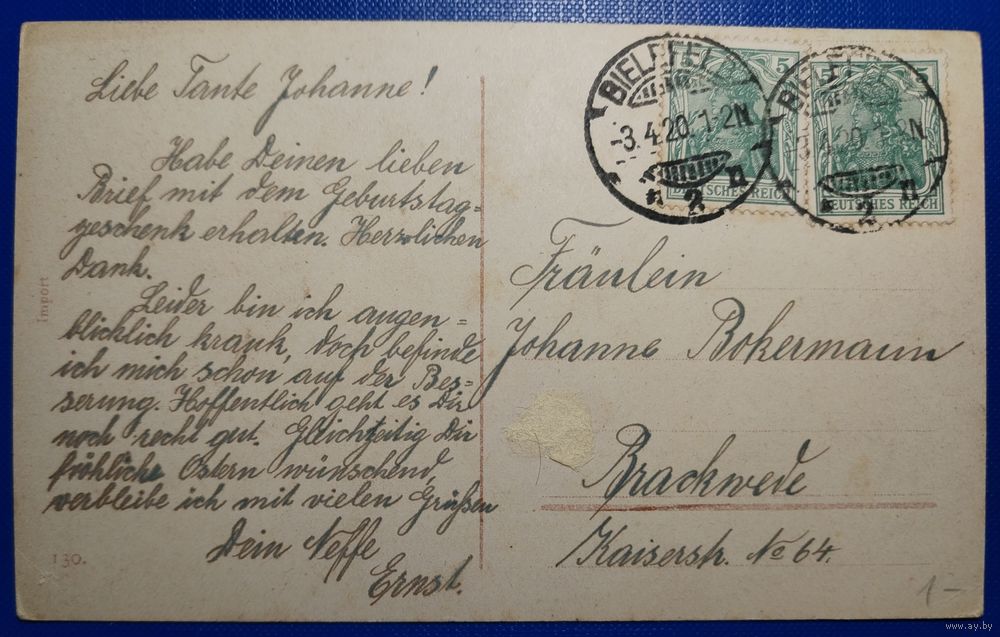 Liebe Tante Johanne!
Habe Deinen lieben
Brief mit dem Geburtstag=
geschenk erhalten. Herzlichen
Dank.
Leider bin ich augen=
blicklich krank, doch befinde
ich mich schon auf der Bes=
serung. Hoffentlich geht es Dir
noch recht gut. Gleichzeitig Dir
fröhliche Ostern wünschend,
verbleibe ich mit vielen Grüßen
Dein Neffe
Ernst.
Import
130.
BIELEFELD
-3.4.20. 1-2N
2
5
DEUTSCHES REICH
BIELEFELD
-3.4.20. 1-2N
2
5
DEUTSCHES REICH
Fräulein
Johanne Bokermann
Brackwede
Kaiserstr. No 64.
1-
www.ay.by